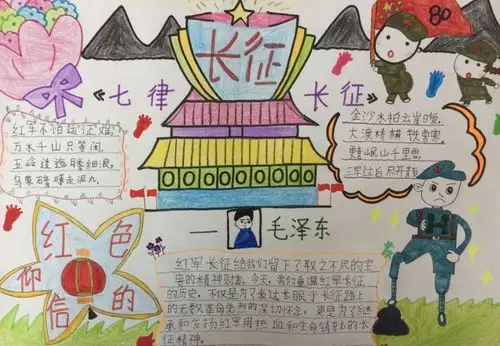 长征
80
《七律 长征》
红军不怕远征难,
万水千山只等闲,
五岭逶迤腾细浪,
乌蒙磅礴走泥丸。
金沙水拍云崖暖,
大渡桥横铁索寒
更喜岷山千里雪
三军过后尽开颜
— 毛泽东
红色的
信仰
红军长征给我们留下了取之不尽的宝
贵的精神财富。今天,我们重温红军长征
的历史,不仅是为了表达长眠于长征路上
的无数革命先烈的深切怀念,更是为了继
承和发扬红军用热血和生命铸就的长
征精神。